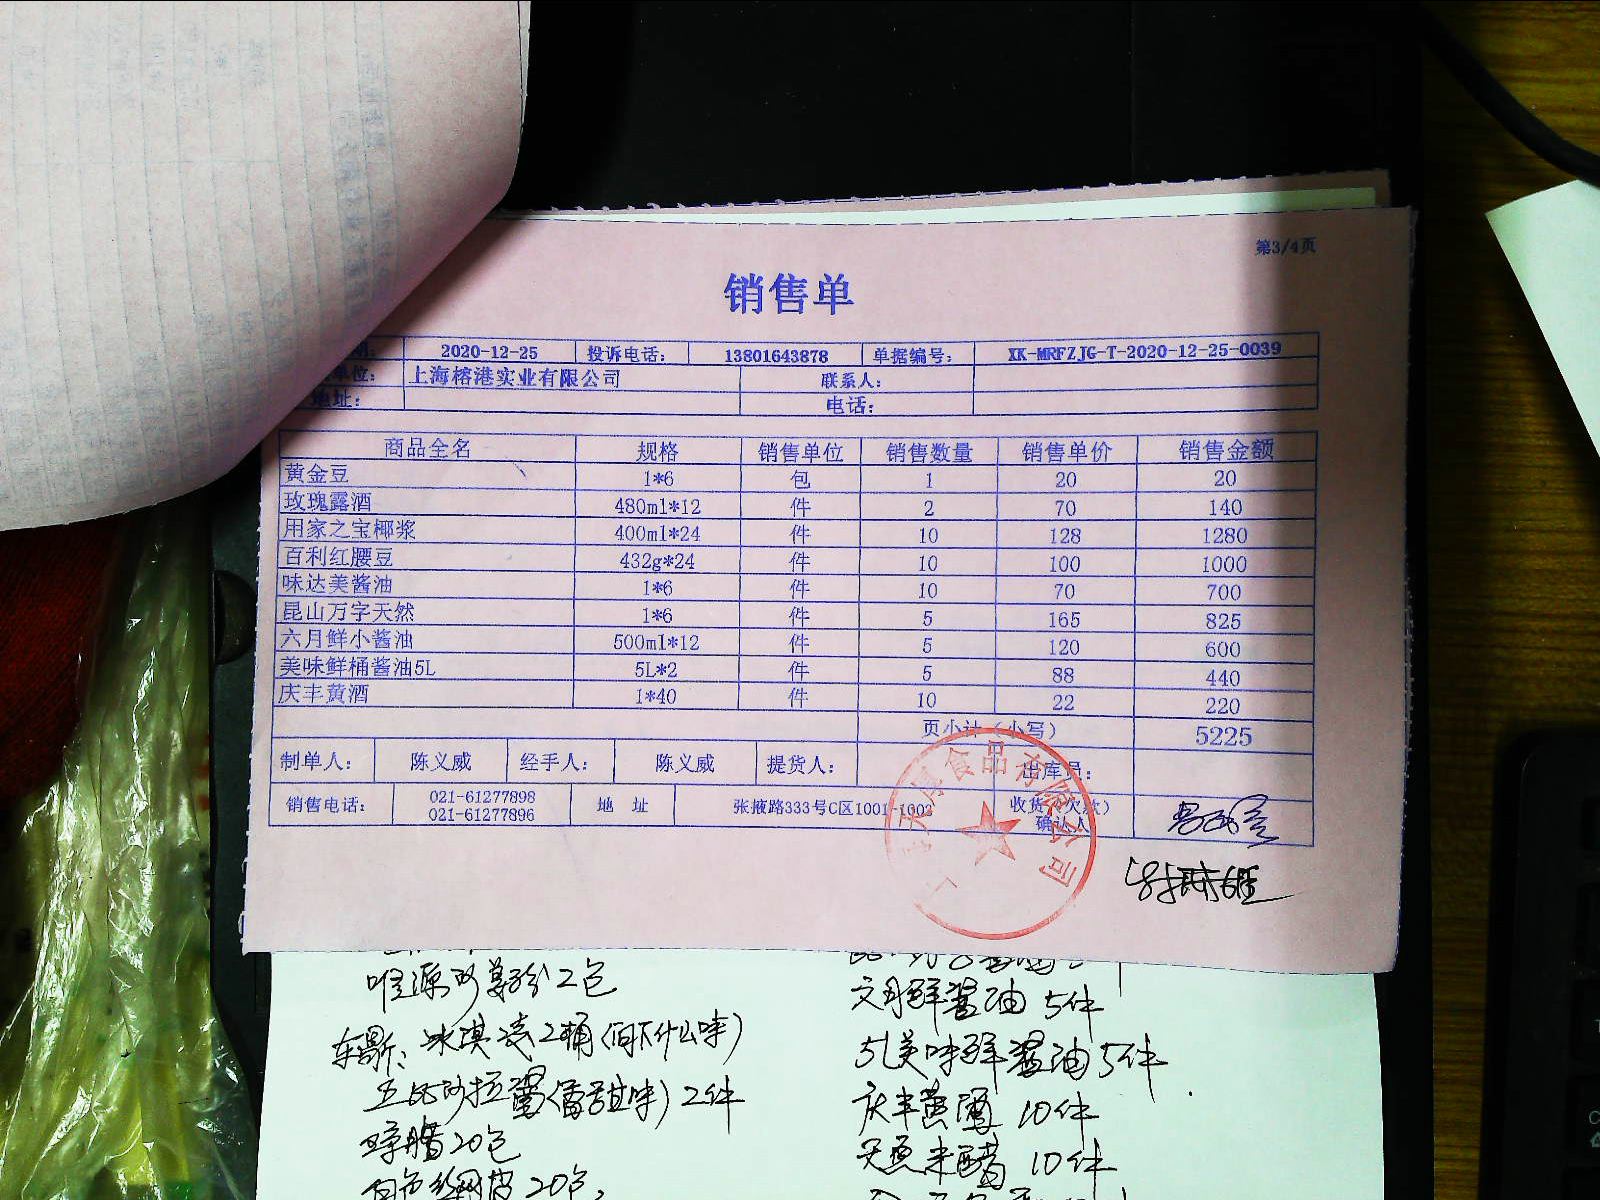 第3/4页
销售单
期: 2020-12-25 投诉电话: 13801643878 单据编号: XK-MRFZJG-T-2020-12-25-0039
单位: 上海榕港实业有限公司 联系人:
地址: 电话:
商品全名 规格 销售单位 销售数量 销售单价 销售金额
黄金豆 1*6 包 1 20 20
玫瑰露酒 480ml*12 件 2 70 140
用家之宝椰浆 400ml*24 件 10 128 1280
百利红腰豆 432g*24 件 10 100 1000
味达美酱油 1*6 件 10 70 700
昆山万字天然 1*6 件 5 165 825
六月鲜小酱油 500ml*12 件 5 120 600
美味鲜桶酱油5L 5L*2 件 5 88 440
庆丰黄酒 1*40 件 10 22 220
页小计(小写) 5225
制单人: 陈义威 经手人: 陈义威 提货人: 出库员:
销售电话: 021-61277898 021-61277896 地 址 张掖路333号C区1001-1002 收货(欠款)确认人
食品有限公司
2包
六月鲜酱油 5件
冰淇淋2桶(问下什么味)
5L美味鲜酱油5件
沙拉酱(香甜味)2件
庆丰黄酒 10件
20包
米醋 10件
20包